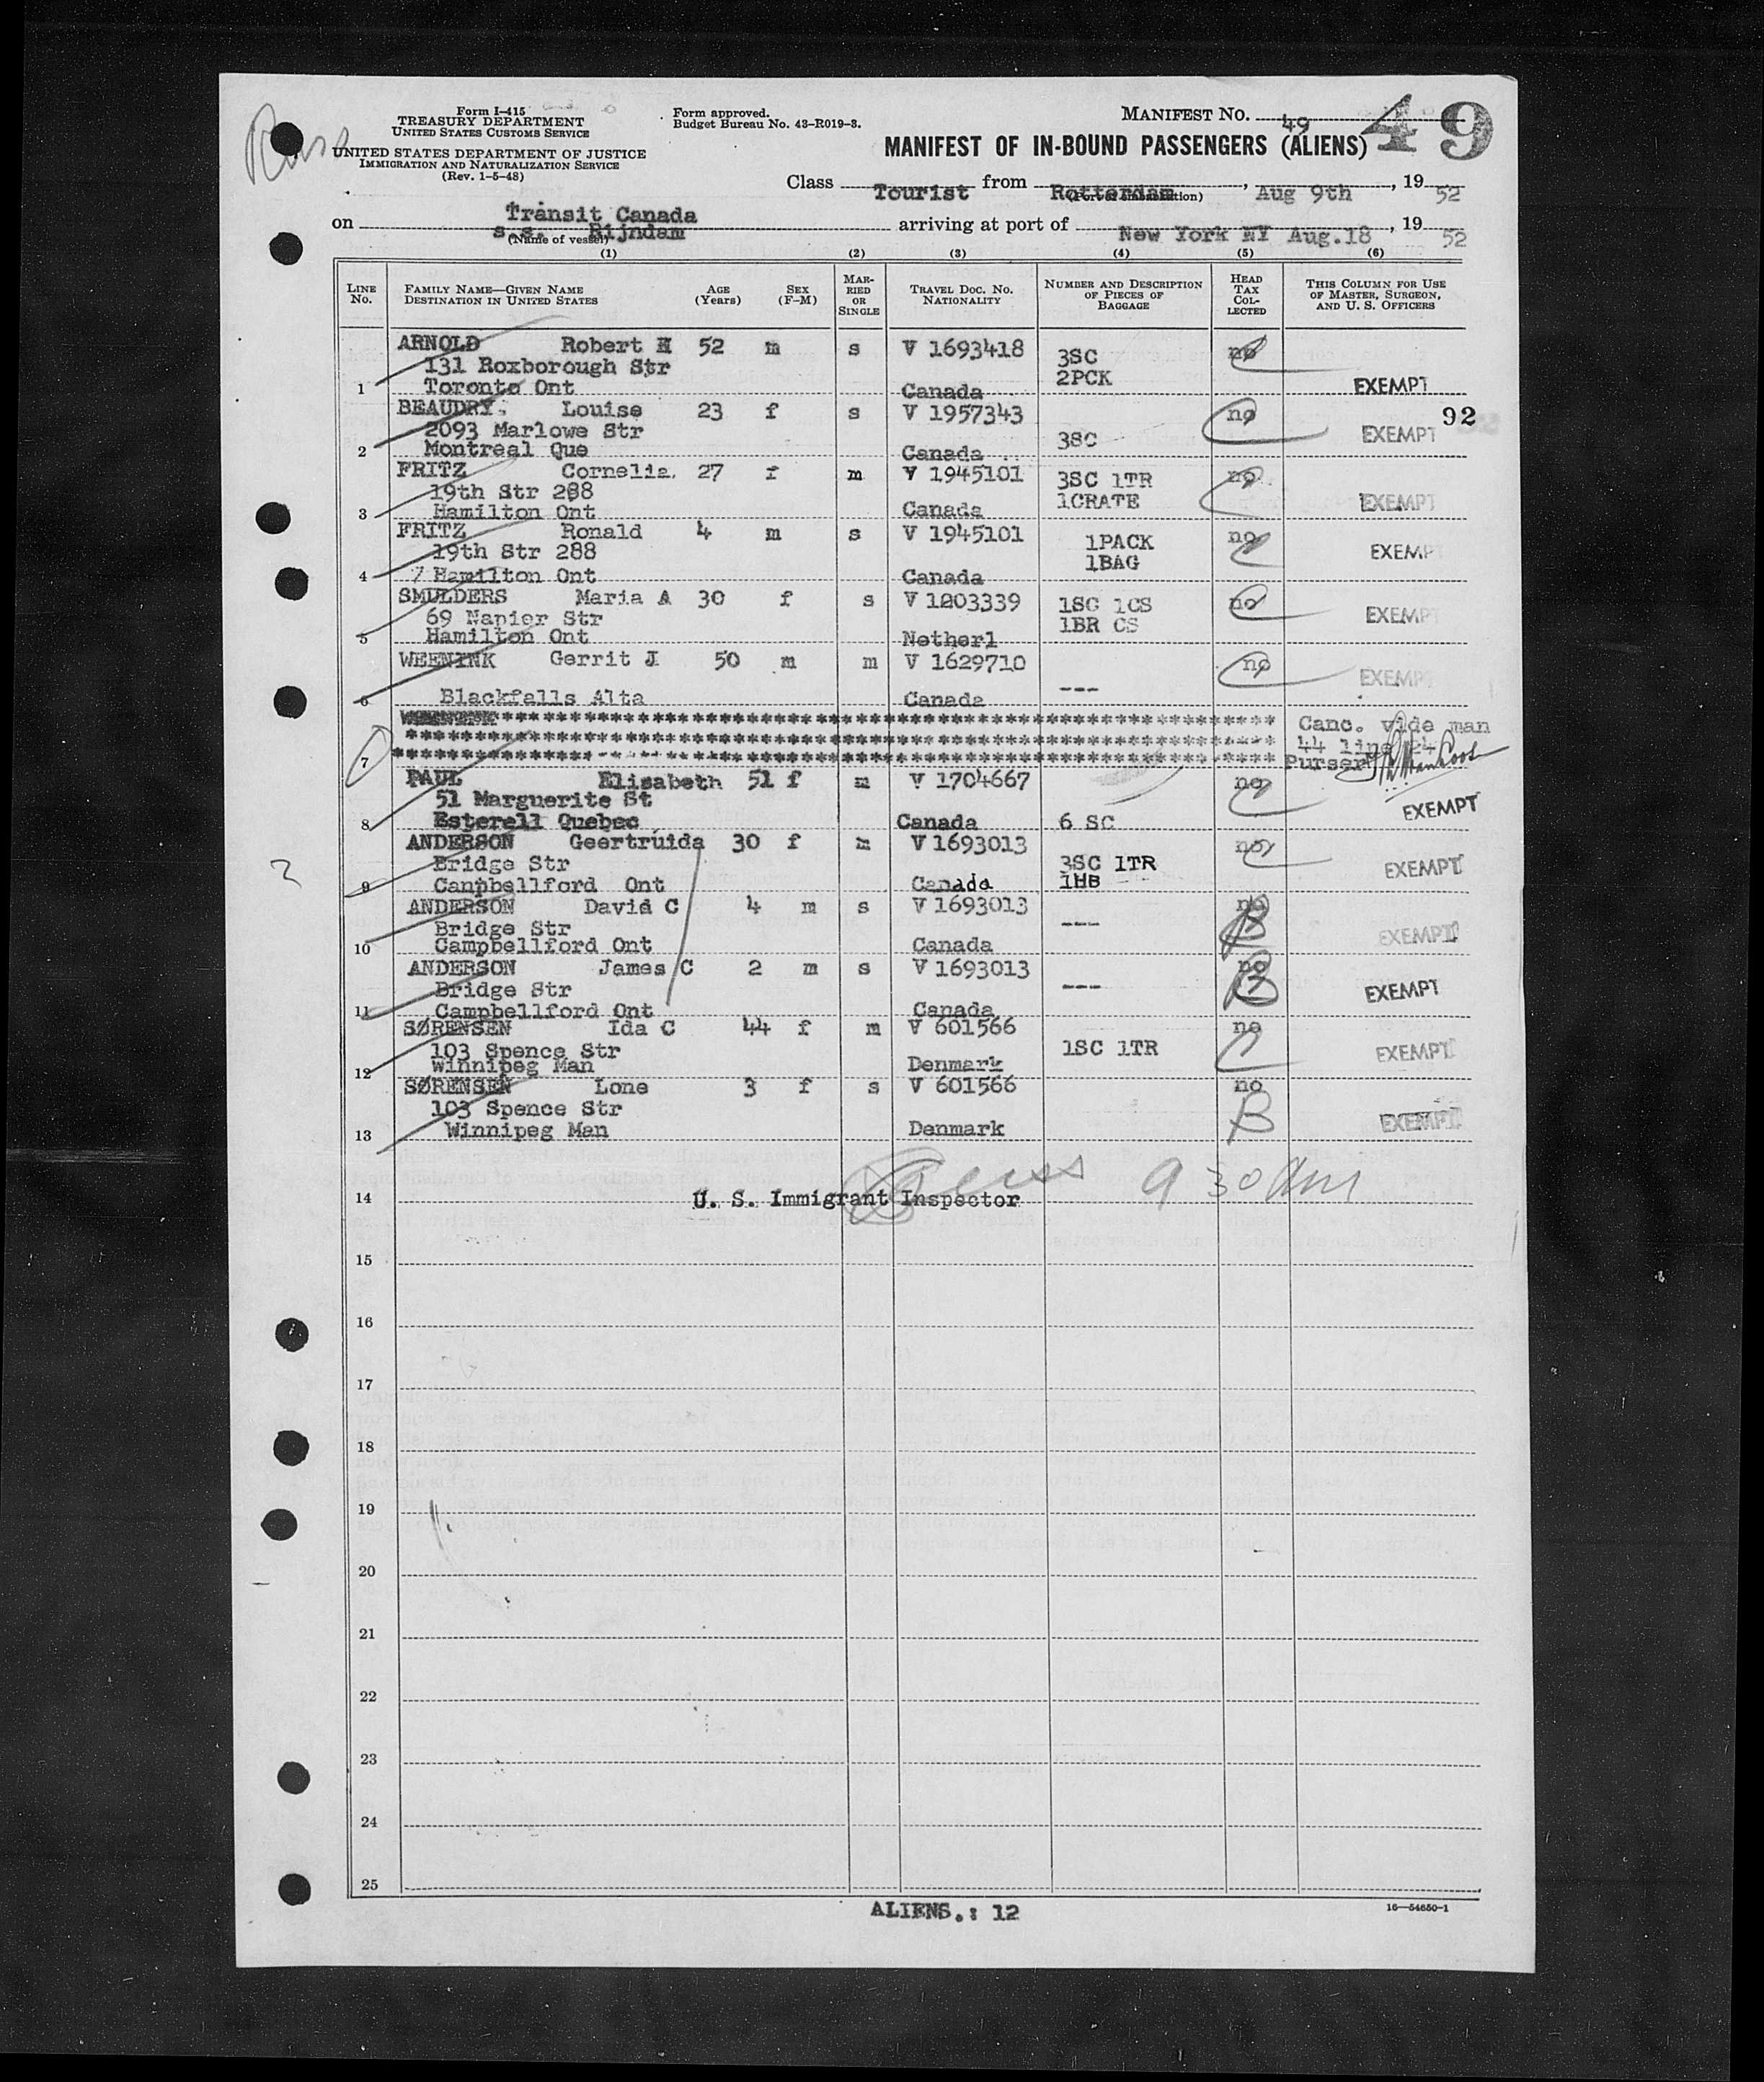 Form I-415
TREASURY DEPARTMENT
UNITED STATES CUSTOMS SERVICE
UNITED STATES DEPARTMENT OF JUSTICE
IMMIGRATION AND NATURALIZATION SERVICE
(Rev. 1-5-48)
Form approved.
Budget Bureau No. 43-R019-3.
MANIFEST NO. 49
49
MANIFEST OF IN-BOUND PASSENGERS (ALIENS)
Class Tourist from Rotterdam, Aug 9th, 19 52
(Port of embarkation)
Transit Canada
on s.s. Rijndam arriving at port of New York NY Aug.18, 19 52
(Name of vessel)
(1) (2) (3) (4) (5) (6)
LINE No. FAMILY NAME—GIVEN NAME DESTINATION IN UNITED STATES AGE (Years) SEX (F-M) MARRIED OR SINGLE TRAVEL DOC. NO. NATIONALITY NUMBER AND DESCRIPTION OF PIECES OF BAGGAGE HEAD TAX COLLECTED THIS COLUMN FOR USE OF MASTER, SURGEON, AND U. S. OFFICERS
ARNOLD Robert H 52 m s V 1693418 3SC no
131 Roxborough Str 2PCK
1 Toronto Ont Canada EXEMPT
BEAUDRY. Louise 23 f s V 1957343 no 92
2093 Marlowe Str 3SC EXEMPT
2 Montreal Que Canada
FRITZ Cornelia. 27 f m V 1945101 3SC 1TR no
19th Str 288 1CRATE EXEMPT
3 Hamilton Ont Canada
FRITZ Ronald 4 m s V 1945101 1PACK no
19th Str 288 1BAG EXEMPT
4 Hamilton Ont Canada
SMULDERS Maria A 30 f s V 1203339 1SC 1CS no
69 Napier Str 1BR CS EXEMPT
5 Hamilton Ont Netherl
WEENINK Gerrit J 50 m m V 1629710 no
6 Blackfalls Alta Canada --- EXEMPT
Canc. vide man
44 line 24
7 Purser
PAUL Elisabeth 51 f m V 1704667 no
51 Marguerite St EXEMPT
8 Esterell Quebec Canada 6 SC
ANDERSON Geertruida 30 f m V 1693013 no
Bridge Str 3SC 1TR EXEMPT
9 Canpbellford Ont Canada 1HB
ANDERSON David C 4 m s V 1693013 no
Bridge Str --- EXEMPT
10 Campbellford Ont Canada
ANDERSON James C 2 m s V 1693013 no
Bridge Str --- EXEMPT
11 Campbellford Ont Canada
SØRENSEN Ida C 44 f m V 601566 no
103 Spence Str 1SC 1TR EXEMPT
12 Winnipeg Man Denmark
SØRENSEN Lone 3 f s V 601566 no
103 Spence Str B EXEMPT
13 Winnipeg Man Denmark
9 30 Am
14 U. S. Immigrant Inspector
15
16
17
18
19
20
21
22
23
24
25
ALIENS.: 12
16—54650-1